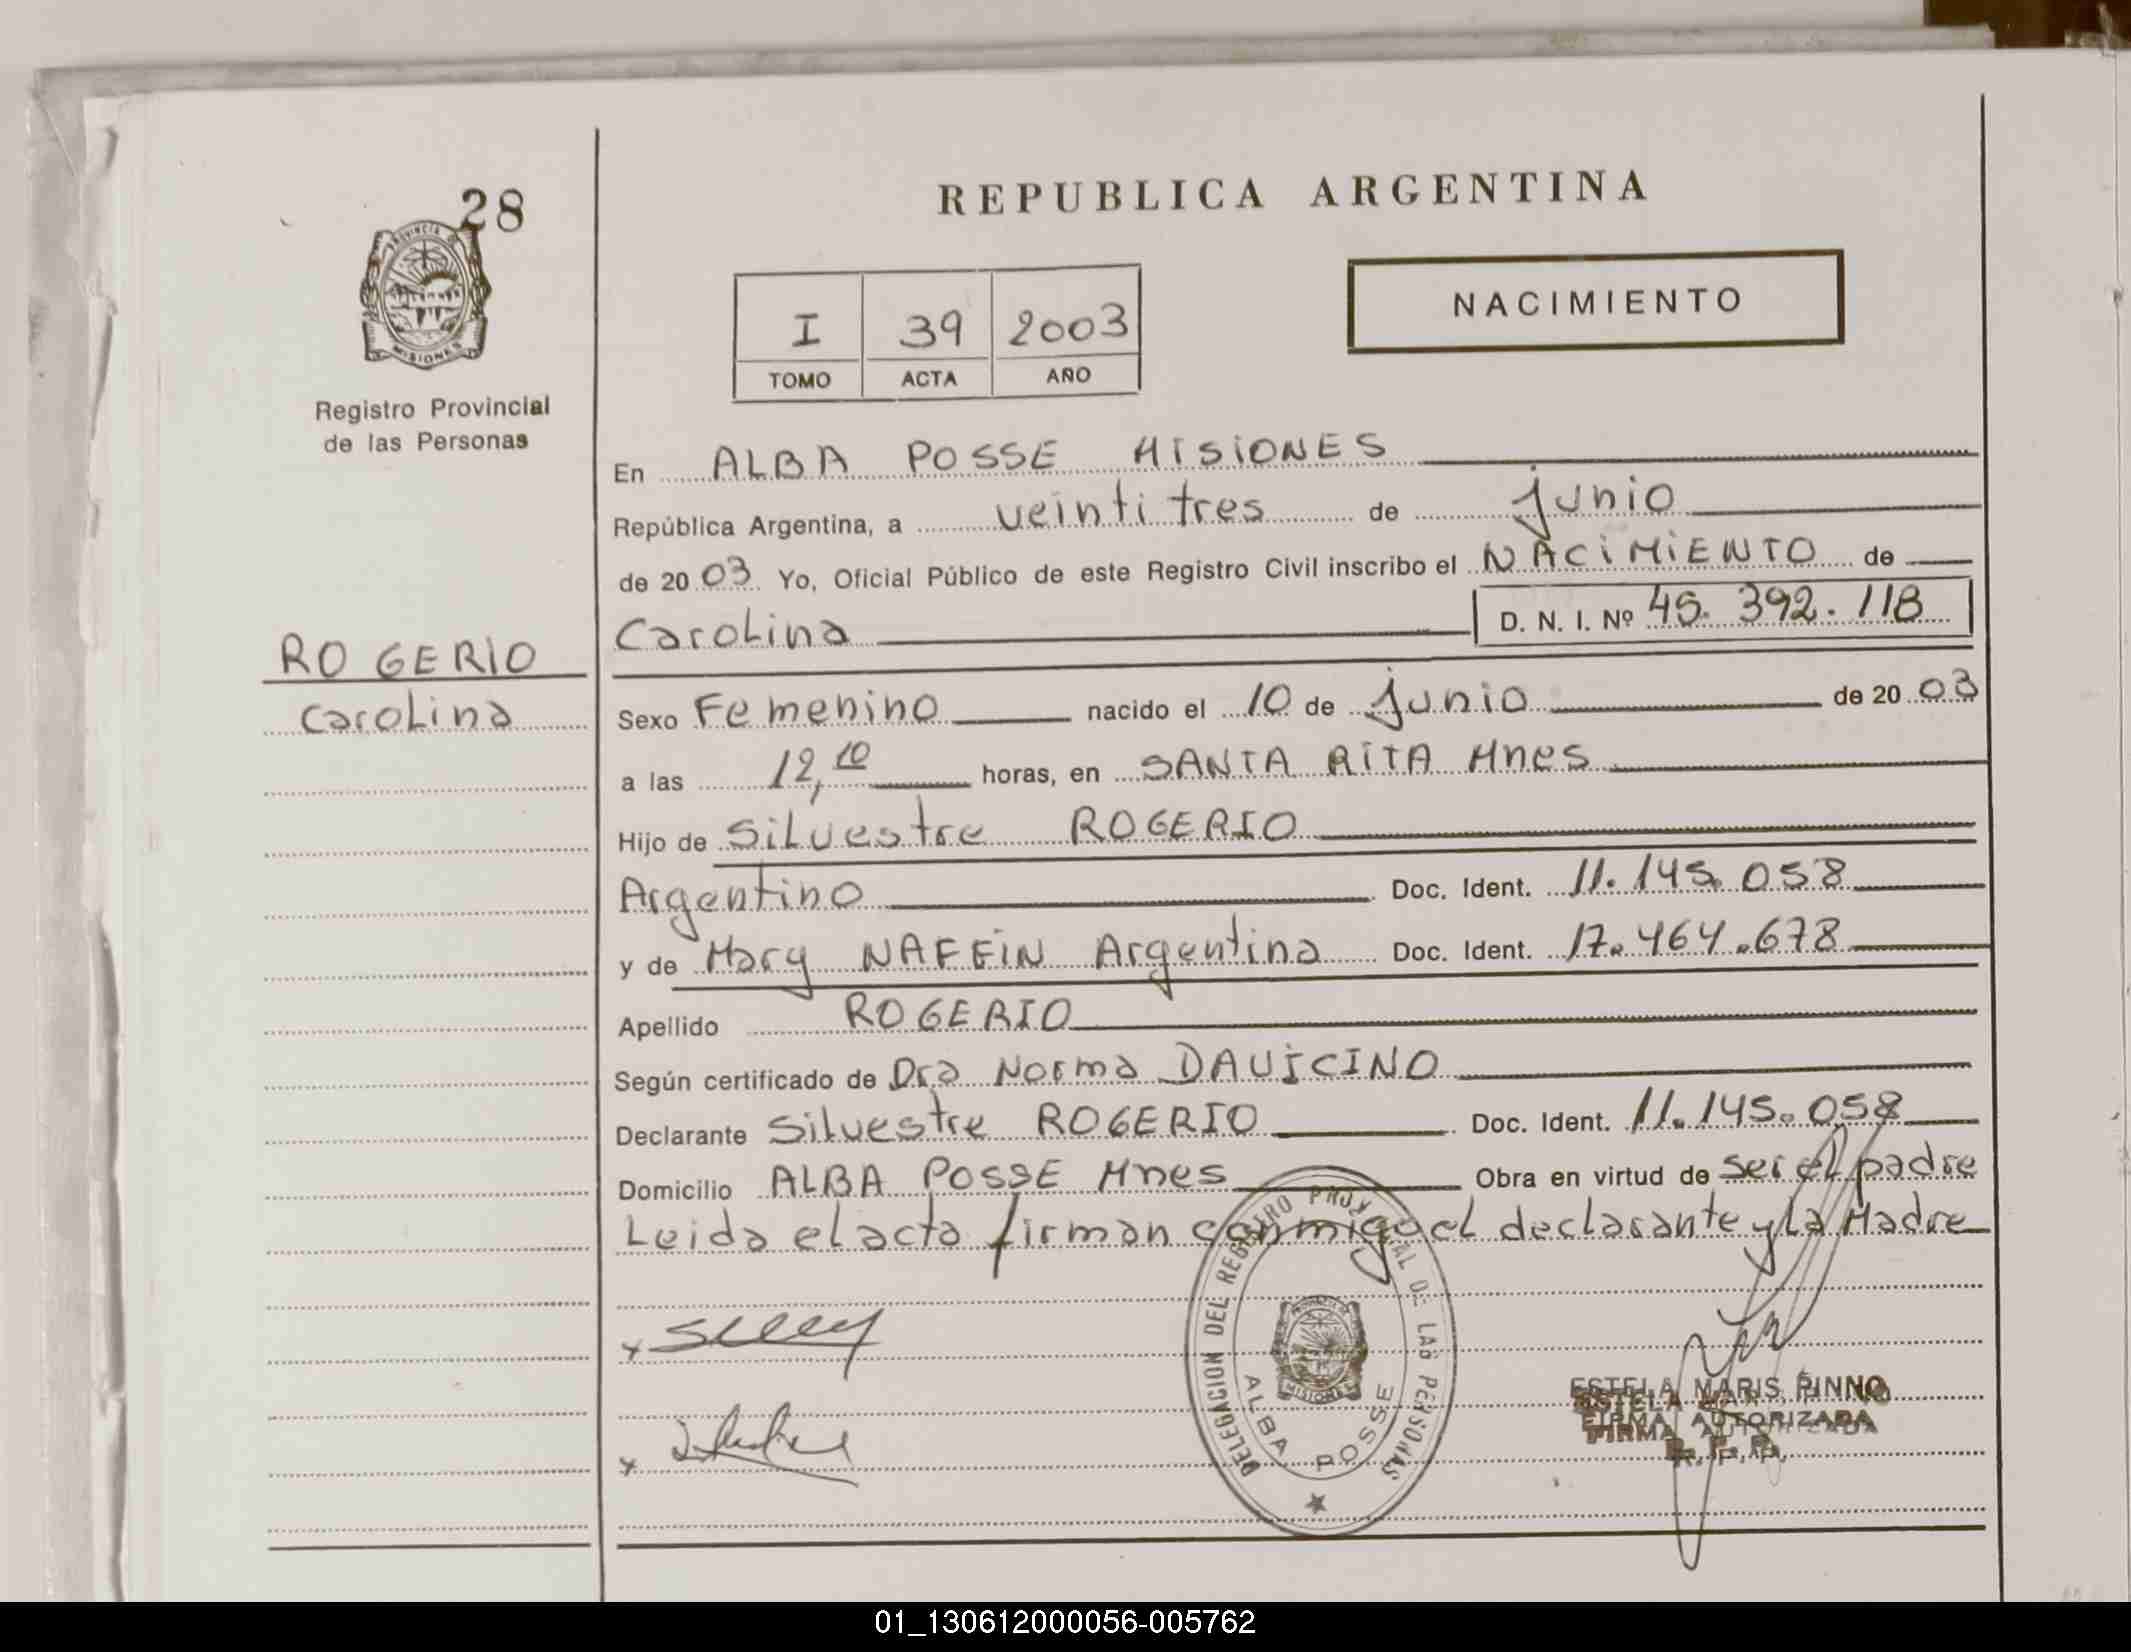 28
PROVINCIA DE
MISIONES
Registro Provincial
de las Personas
ROGERIO
Carolina
REPUBLICA ARGENTINA
I 39 2003
TOMO ACTA AÑO
NACIMIENTO
En ALBA POSSE MISIONES
República Argentina, a veintitres de junio
de 2003 Yo, Oficial Público de este Registro Civil inscribo el NACIMIENTO de
Carolina D. N. I. Nº 45.392.118
Sexo Femenino nacido el 10 de junio de 2003
a las 12,10 horas, en SANTA RITA Mnes
Hijo de Silvestre ROGERIO
Argentino Doc. Ident. 11.145.058
y de Mary NAFFIN Argentina Doc. Ident. 17.464.678
Apellido ROGERIO
Según certificado de Dra Norma DAVICINO
Declarante Silvestre ROGERIO Doc. Ident. 11.145.058
Domicilio ALBA POSSE Mnes Obra en virtud de ser el padre
Leida el acta firman conmigo el declarante y La Madre
DELEGACION DEL REGISTRO PROVINCIAL DE LAS PERSONAS
MISIONES
ALBA POSSE
ESTELA MARIS PINNO
FIRMA AUTORIZADA
R.P.P.
01_130612000056-005762